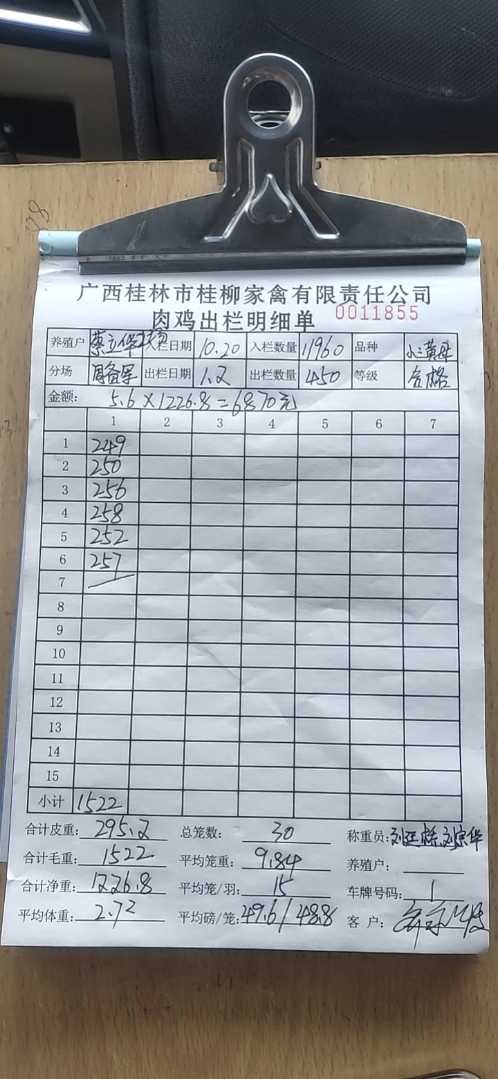 广西桂林市桂柳家禽有限责任公司
肉鸡出栏明细单 0011855
养殖户 蔡立华 入栏日期 10.20 入栏数量 11960 品种 小三黄母
分场 出栏日期 1.2 出栏数量 450 等级 合格
金额: 5.6×1226.8=6870元
1 2 3 4 5 6 7
1 249
2 250
3 256
4 258
5 252
6 257
7
8
9
10
11
12
13
14
15
小计 1522
合计皮重: 295.2 总笼数: 30 称重员:
合计毛重: 1522 平均笼重: 9.84 养殖户:
合计净重: 1226.8 平均笼/羽: 15 车牌号码: 1
平均体重: 2.72 平均磅/笼: 49.6/48.8 客户: